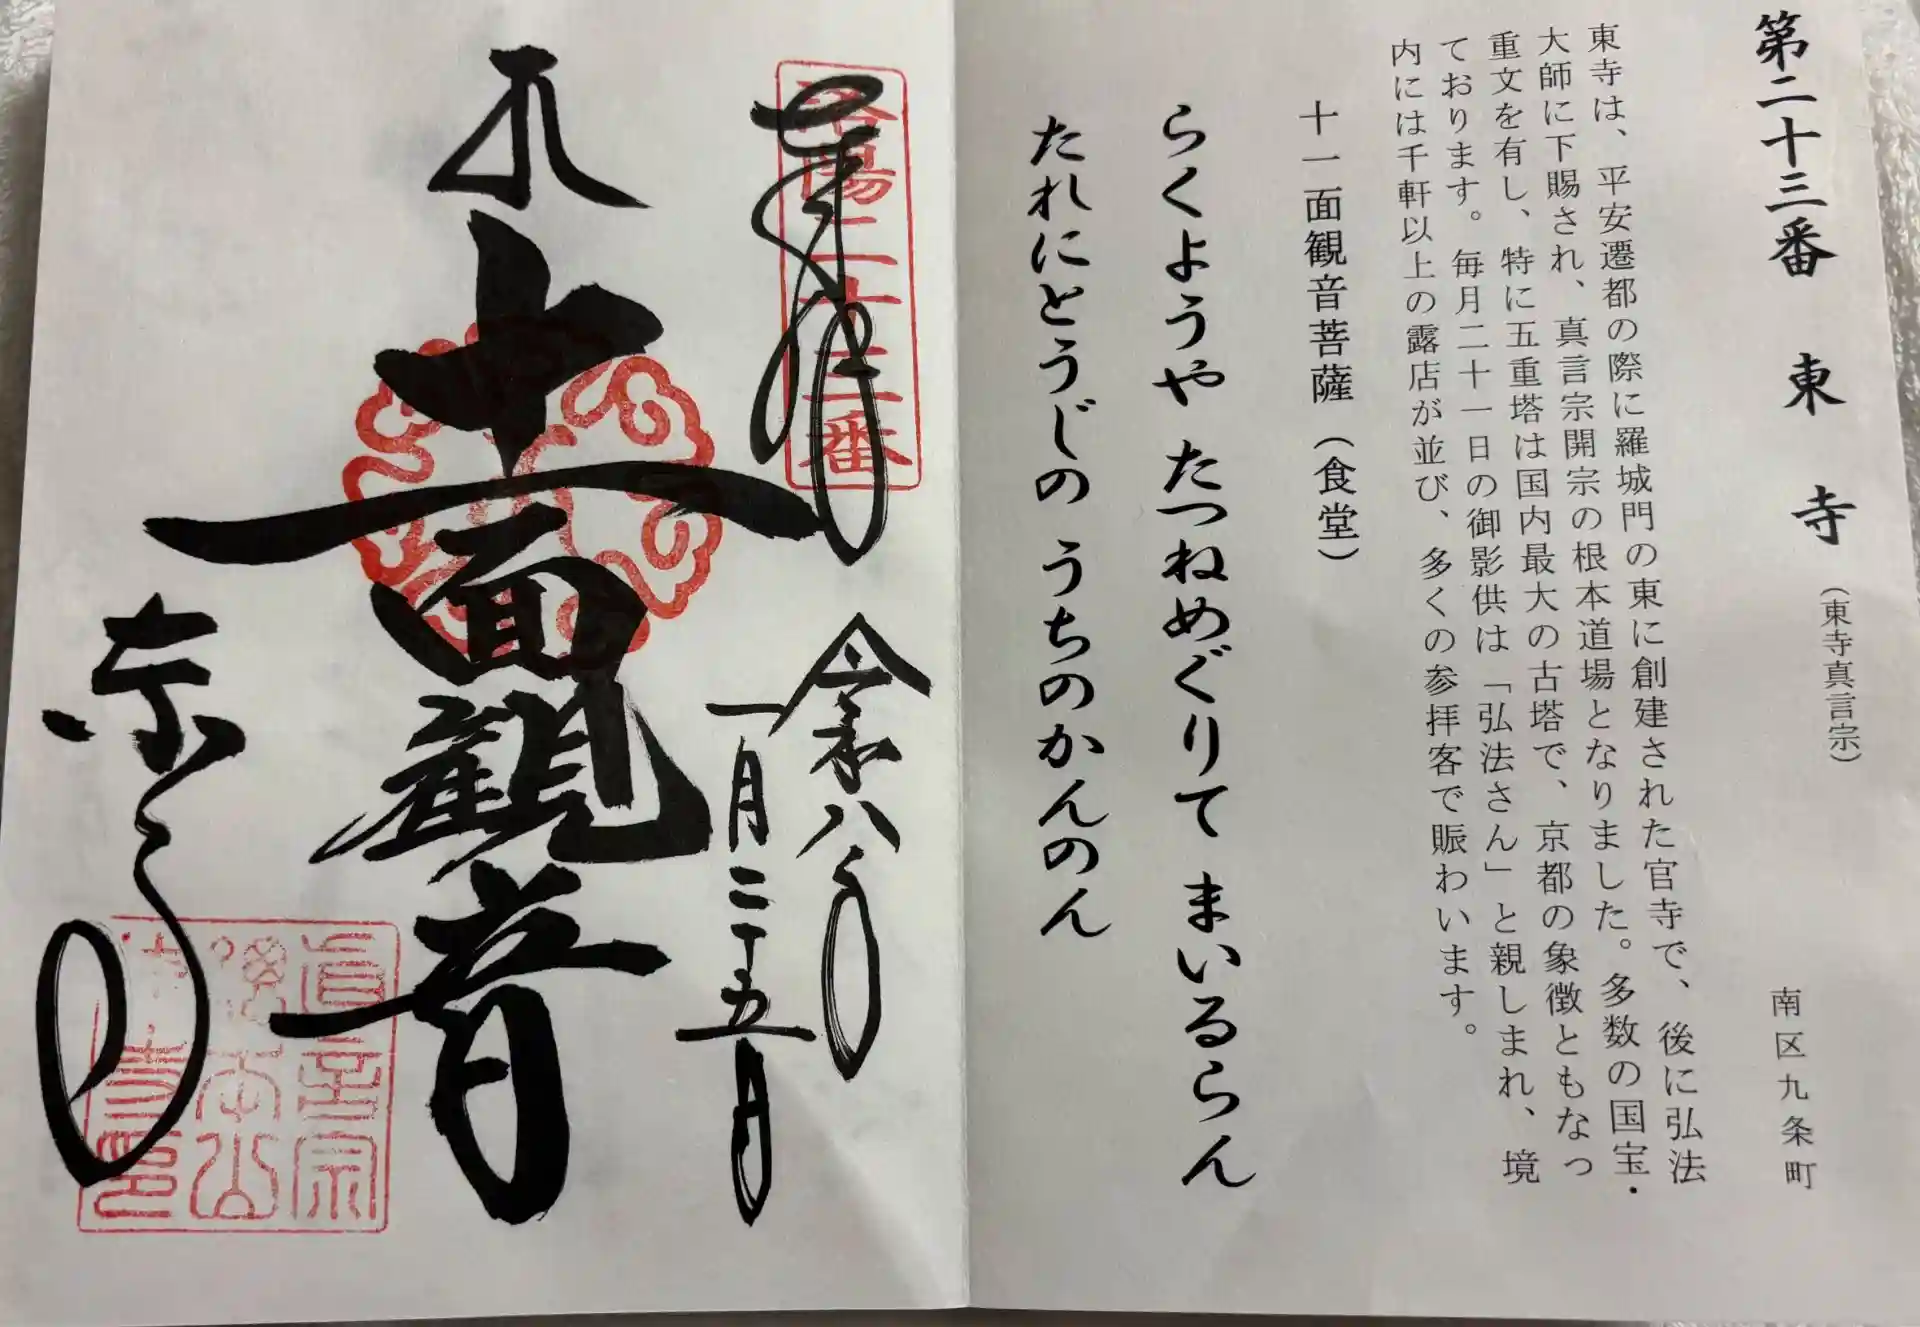 第二十三番 東寺(東寺真言宗) 南区九条町
東寺は、平安遷都の際に羅城門の東に創建された官寺で、後に弘法
大師に下賜され、真言宗開宗の根本道場となりました。多数の国宝・
重文を有し、特に五重塔は国内最大の古塔で、京都の象徴ともなっ
ております。毎月二十一日の御影供は「弘法さん」と親しまれ、境
内には千軒以上の露店が並び、多くの参拝客で賑わいます。
十一面観音菩薩(食堂)
らくようや たつねめぐりて まいるらん
たれにとうじの うちのかんのん
奉拝
洛陽二十三番
令和八年
一月二十五日
十一面観音
東寺